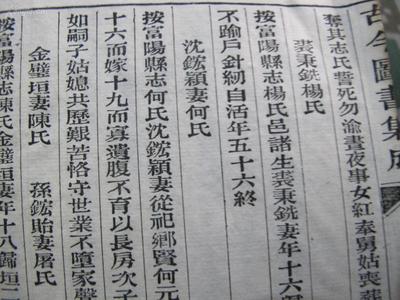 古今圖書集成
奪其志氏誓死勿渝晝夜事女紅奉舅姑喪葬
裘秉銑妻楊氏
按富陽縣志楊氏邑諸生裘秉銑妻年十六
不踰戶針紉自活年五十六終
沈鋐穎妻何氏
按富陽縣志何氏沈鋐穎妻從祀鄉賢何元
十六而嫁十九而寡遺腹不育以長房次子
如嗣子姑媳共歷艱苦恪守世業不墮家聲
金璧垣妻陳氏 孫鋐貽妻屠氏
按富陽縣志陳氏金璧垣妻年十八歸垣二